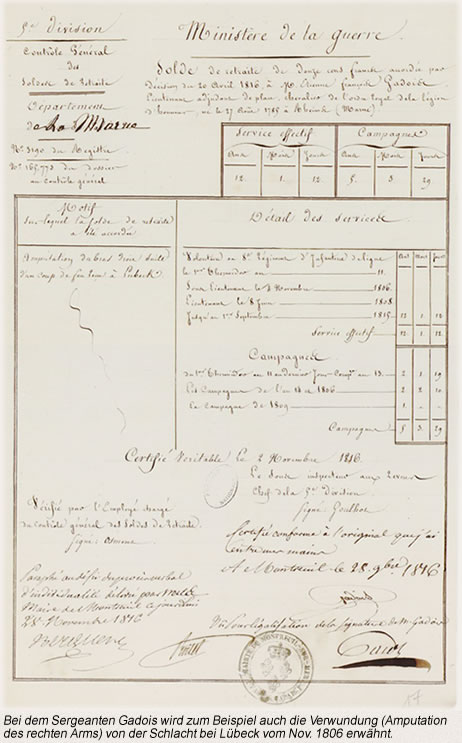 5e Division
Contrôle Général
des
Soldes de Retraite
Département
de La Marne
No. 3190 du Registre
No. 165,773 du Dossier
au contrôle général
Ministère de la guerre.
Solde de retraite de douze cens francs accordée par
décision du 20 Avril 1816, à Mr. Etienne françois Gadois
Lieutenant adjudant de place, chevalier de l'ordre royal de la Légion
d'honneur, né le 27 Août 1785 à Rheims (Marne)
Service effectif Campagnes
Ans Mois Jours Ans Mois Jours
12. 1. 12. 5. 3. 29.
Motif
sur lequel la solde de retraite
a été accordée
Amputation du bras droit suite
d'un coup de feu reçu à Lubeck.
Détail des services
Ans Mois Jours
Volontaire au 8e Régiment d'Infanterie de ligne
le 1er Thermidor an 11.
Sous Lieutenant le 3 Novembre 1806.
Lieutenant le 8 Juin 1808.
Jusqu'au 1er Septembre 1815. 12 1 12
Service effectif 12 1 12
Campagnes
du 1er Thermidor an 11 au dernier Jour Compre. an 13. 2 1 19
Les Campagnes de l'an 14 et 1806 2 2 10
la Campagne de 1809 1. - -
Campagnes 5 3 29
Certifié Véritable le 2 Novembre 1816.
Le sous inspecteur aux revues
Chef de la 5e Division
Signé: Goulhot
Vérifié par l'Employé chargé
du contrôle général des Soldes de Retraite.
Signé:
Certifié conforme à l'original que j'ai
entre mes mains
A Montreuil le 28 9bre 1816
d'individualité délivré par nous
Maire de Montreuil ce jourd'hui
28 Novembre 1816
Vu pour légalisation de la signature de Mr Gadois
17
Bei dem Sergeanten Gadois wird zum Beispiel auch die Verwundung (Amputation
des rechten Arms) von der Schlacht bei Lübeck vom Nov. 1806 erwähnt.